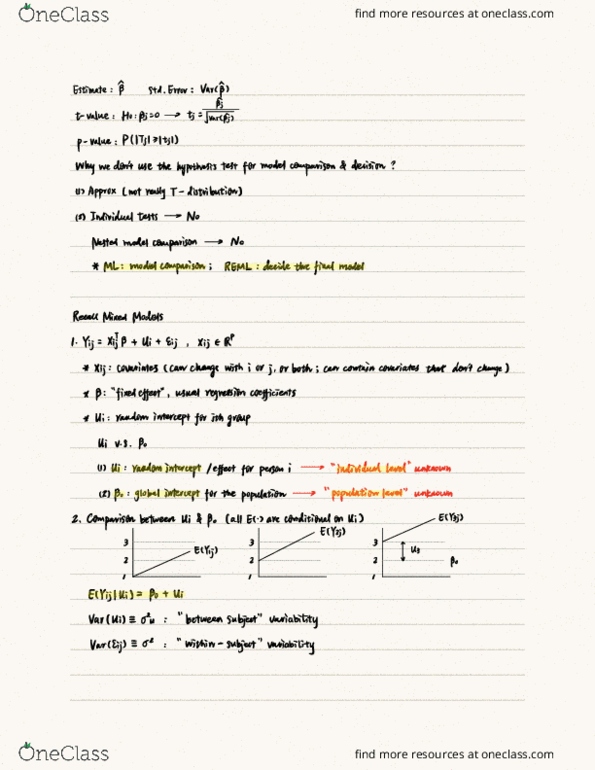 OneClass
find more resources at oneclass.com
Estimate : β̂ Std. Error : Var(β̂)
t-value : H0 : βj = 0 → tj = β̂j / √Var(β̂j)
p-value : P(|Tj| ≥ |tj|)
Why we don't use the hypothesis test for model comparison & decision ?
(1) Approx (not really T-distribution)
(2) Individual tests → No
Nested model comparison → No
* ML : model comparison ; REML : decide the final model
Recall Mixed Models
1. Yij = Xijᵀβ + Ui + εij , Xij ∈ Rᴾ
* Xij : covariates (can change with i or j, or both ; can contain covariates that don't change)
* β : "fixed effect", usual regression coefficients
* Ui : random intercept for ith group
Ui v.s. β0
(1) Ui : random intercept /effect for person i → "individual level" unknown
(2) β0 : global intercept for the population → "population level" unknown
2. Comparison between Ui & β0 (all E(·) are conditional on Ui)
3 2 1 E(Y1j)
3 2 1 E(Y2j)
3 2 1 E(Y3j) U3 β0
E(Yij|Ui) = β0 + Ui
Var(Ui) ≡ σ²u : "between subject" variability
Var(εij) ≡ σ² : "within-subject" variability
OneClass
find more resources at oneclass.com